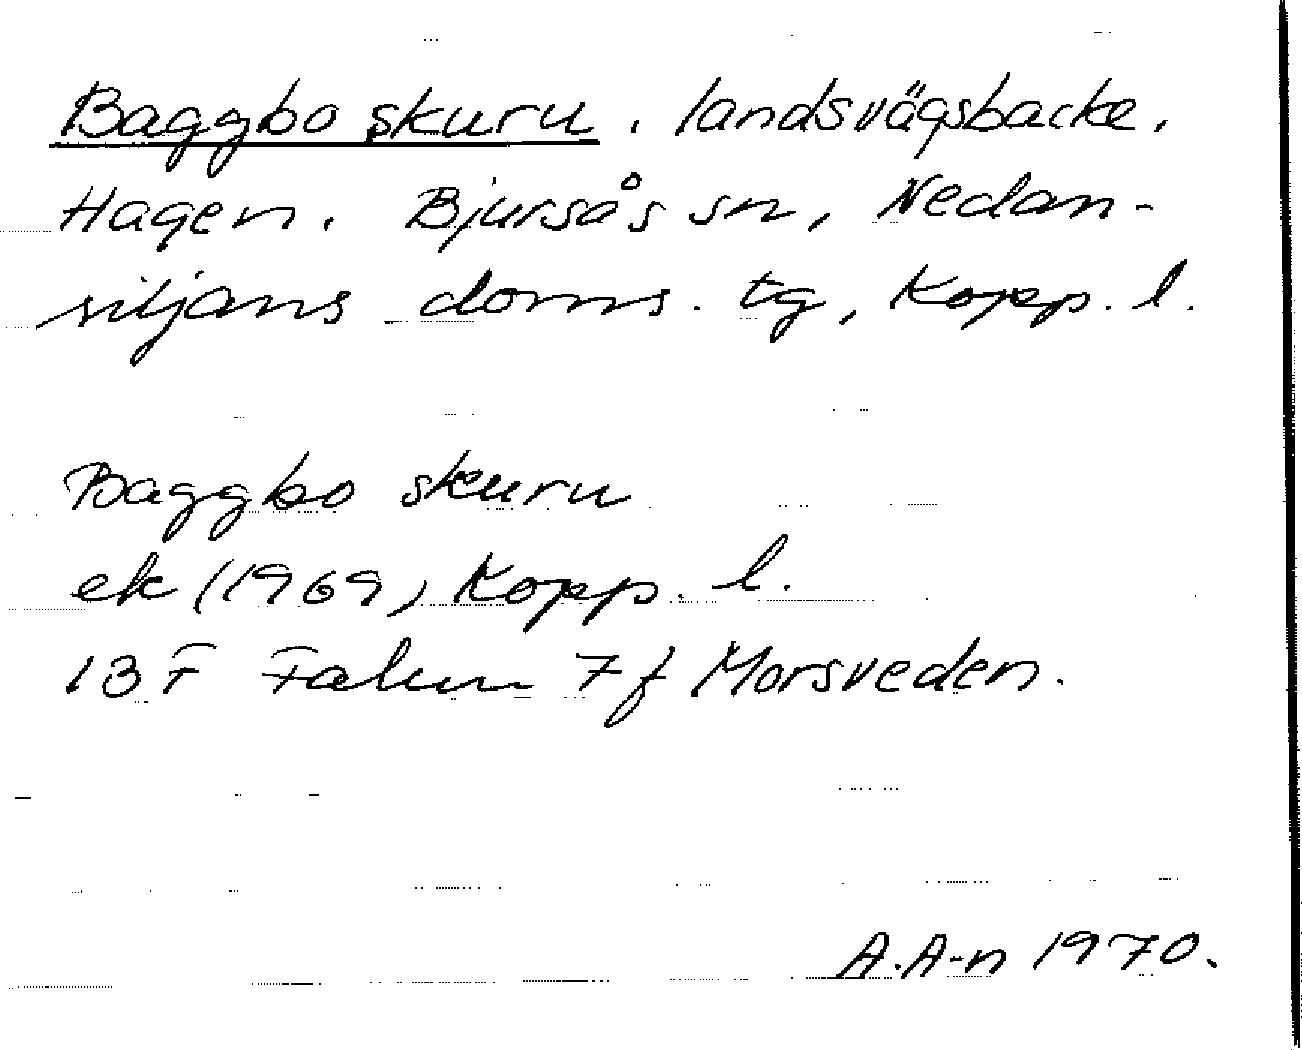 Baggbo skuru. landsvägsbacke.
Hagen. Bjursås sn, Nedan-
siljans doms. tg, Kopp. l.
Baggbo skuru
ek (1969) Kopp. l.
13 F Falun 7 f Morsveden.
A.A-n 1970.